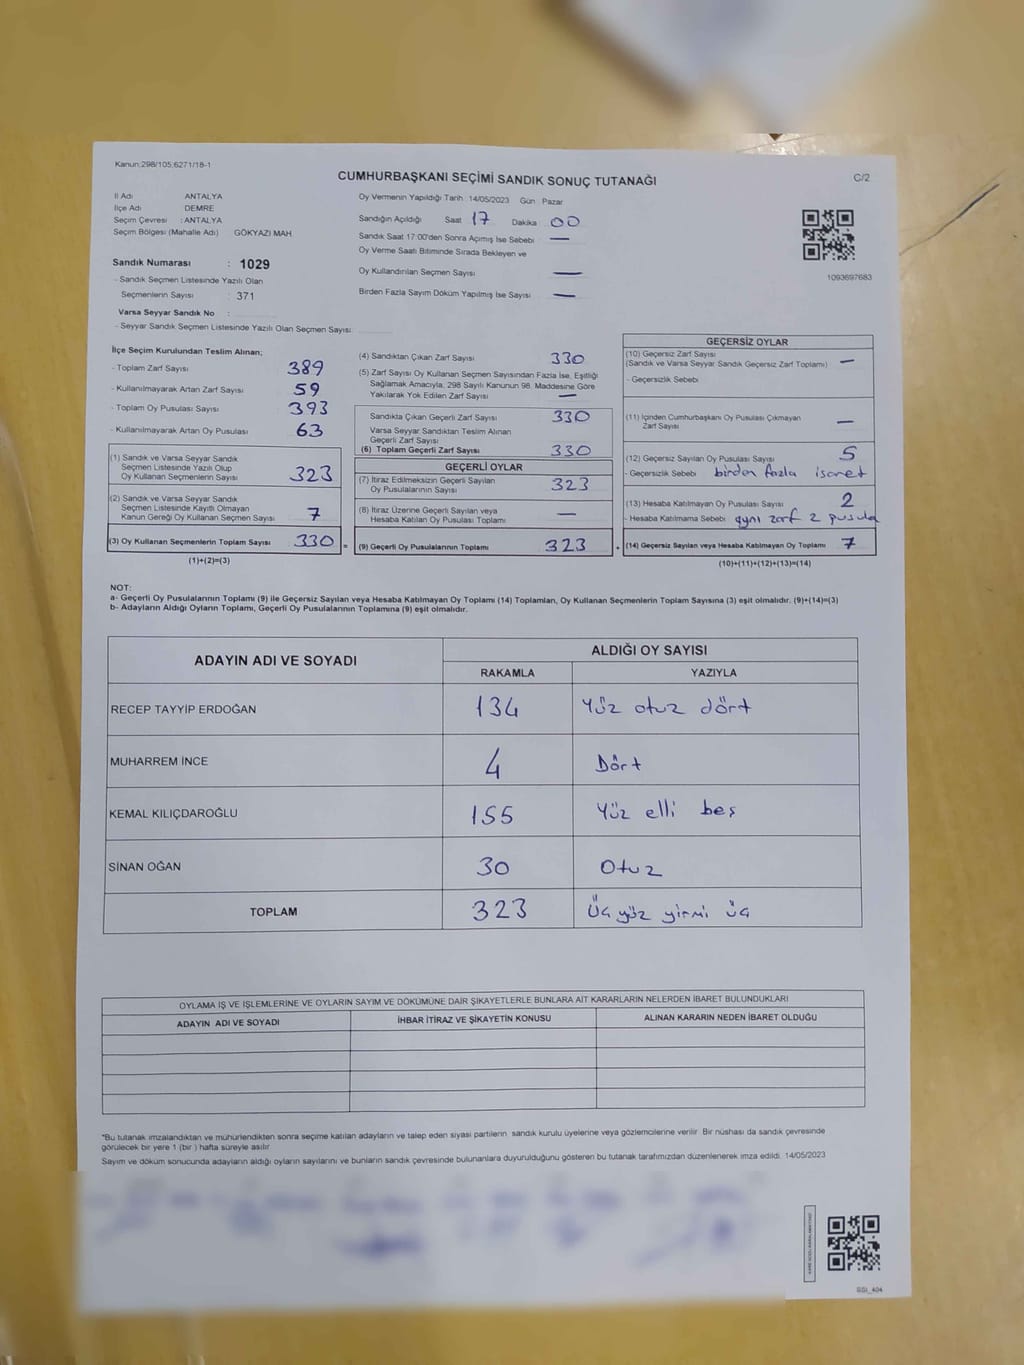 Kanun;298/105;6271/18-1
CUMHURBAŞKANI SEÇİMİ SANDIK SONUÇ TUTANAĞI
C/2
İl Adı ANTALYA
İlçe Adı DEMRE
Seçim Çevresi : ANTALYA
Seçim Bölgesi (Mahalle Adı) GÖKYAZI MAH.
Oy Vermenin Yapıldığı Tarih : 14/05/2023 Gün Pazar
Sandığın Açıldığı Saat 17 Dakika 00
Sandık Saat 17:00'den Sonra Açımış İse Sebebi —
Oy Verme Saati Bitiminde Sırada Bekleyen ve
Oy Kullandırılan Seçmen Sayısı —
Birden Fazla Sayım Döküm Yapılmış İse Sayısı —
1093697683
Sandık Numarası : 1029
- Sandık Seçmen Listesinde Yazılı Olan
Seçmenlerin Sayısı : 371
Varsa Seyyar Sandık No :
- Seyyar Sandık Seçmen Listesinde Yazılı Olan Seçmen Sayısı:
İlçe Seçim Kurulundan Teslim Alınan;
- Toplam Zarf Sayısı 389
- Kullanılmayarak Artan Zarf Sayısı 59
- Toplam Oy Pusulası Sayısı 393
- Kullanılmayarak Artan Oy Pusulası 63
(1) Sandık ve Varsa Seyyar Sandık
Seçmen Listesinde Yazılı Olup
Oy Kullanan Seçmenlerin Sayısı 323
(2) Sandık ve Varsa Seyyar Sandık
Seçmen Listesinde Kayıtlı Olmayan
Kanun Gereği Oy Kullanan Seçmen Sayısı 7
(3) Oy Kullanan Seçmenlerin Toplam Sayısı 330
(1)+(2)=(3)
=
(4) Sandıktan Çıkan Zarf Sayısı 330
(5) Zarf Sayısı Oy Kullanan Seçmen Sayısından Fazla İse, Eşitliği
Sağlamak Amacıyla, 298 Sayılı Kanunun 98. Maddesine Göre
Yakılarak Yok Edilen Zarf Sayısı —
Sandıkta Çıkan Geçerli Zarf Sayısı 330
Varsa Seyyar Sandıktan Teslim Alınan
Geçerli Zarf Sayısı
(6) Toplam Geçerli Zarf Sayısı 330
GEÇERLİ OYLAR
(7) İtiraz Edilmeksizin Geçerli Sayılan
Oy Pusulalarının Sayısı 323
(8) İtiraz Üzerine Geçerli Sayılan veya
Hesaba Katılan Oy Pusulası Toplamı —
(9) Geçerli Oy Pusulalarının Toplamı 323
+
GEÇERSİZ OYLAR
(10) Geçersiz Zarf Sayısı
(Sandık ve Varsa Seyyar Sandık Geçersiz Zarf Toplamı) —
- Geçersizlik Sebebi
(11) İçinden Cumhurbaşkanı Oy Pusulası Çıkmayan
Zarf Sayısı —
(12) Geçersiz Sayılan Oy Pusulası Sayısı 5
- Geçersizlik Sebebi birden fazla işaret
(13) Hesaba Katılmayan Oy Pusulası Sayısı 2
- Hesaba Katılmama Sebebi aynı zarf 2 pusula
(14) Geçersiz Sayılan veya Hesaba Katılmayan Oy Toplamı 7
(10)+(11)+(12)+(13)=(14)
NOT:
a- Geçerli Oy Pusulalarının Toplamı (9) ile Geçersiz Sayılan veya Hesaba Katılmayan Oy Toplamı (14) Toplamları, Oy Kullanan Seçmenlerin Toplam Sayısına (3) eşit olmalıdır. (9)+(14)=(3)
b- Adayların Aldığı Oyların Toplamı, Geçerli Oy Pusulalarının Toplamına (9) eşit olmalıdır.
ADAYIN ADI VE SOYADI
ALDIĞI OY SAYISI
RAKAMLA YAZIYLA
RECEP TAYYİP ERDOĞAN 134 Yüz otuz dört
MUHARREM İNCE 4 Dört
KEMAL KILIÇDAROĞLU 155 Yüz elli beş
SİNAN OĞAN 30 Otuz
TOPLAM 323 Üç yüz yirmi üç
OYLAMA İŞ VE İŞLEMLERİNE VE OYLARIN SAYIM VE DÖKÜMÜNE DAİR ŞİKAYETLERLE BUNLARA AİT KARARLARIN NELERDEN İBARET BULUNDUKLARI
ADAYIN ADI VE SOYADI İHBAR İTİRAZ VE ŞİKAYETİN KONUSU ALINAN KARARIN NEDEN İBARET OLDUĞU
*Bu tutanak imzalandıktan ve mühürlendikten sonra seçime katılan adayların ve talep eden siyasi partilerin sandık kurulu üyelerine veya gözlemcilerine verilir. Bir nüshası da sandık çevresinde
görülecek bir yere 1 (bir ) hafta süreyle asılır.
Sayım ve döküm sonucunda adayların aldığı oyların sayılarını ve bunların sandık çevresinde bulunanlara duyurulduğunu gösteren bu tutanak tarafımızdan düzenlenerek imza edildi. 14/05/2023
SSI_404